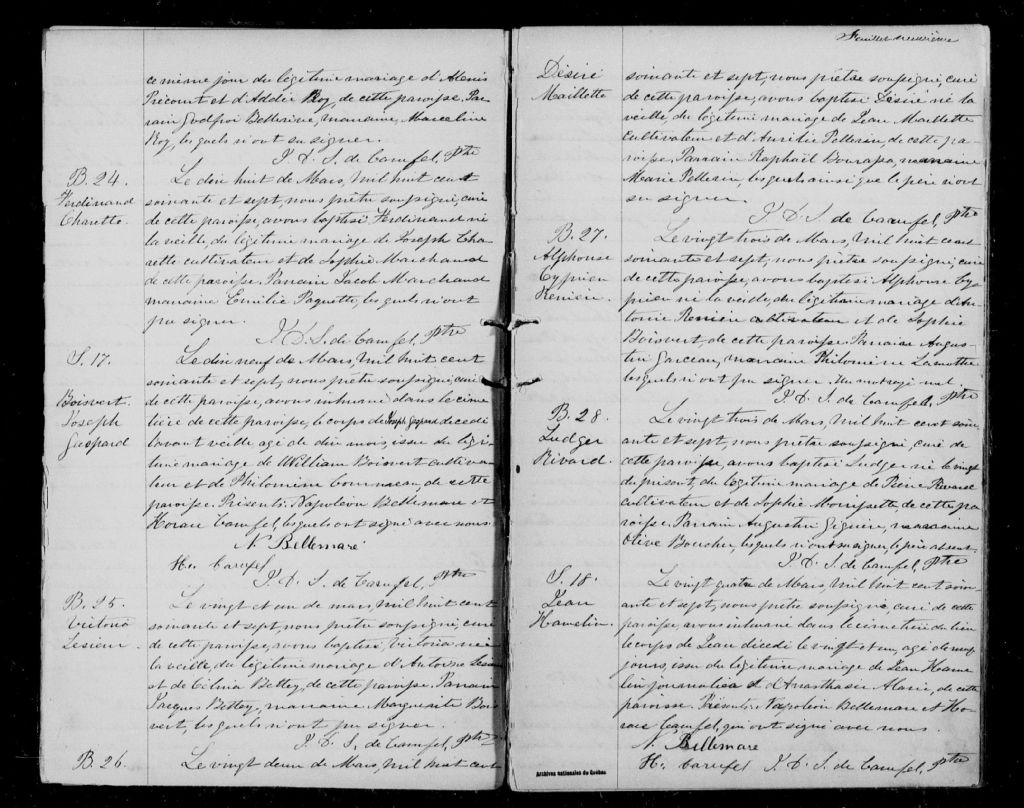 ce même jour du légitime mariage d'Alexis
Précourt et d'Addée Roy, de cette paroisse. Par-
rain Godfroi Bellerive, marraine, Marceline
Roy, lesquels n'ont su signer.
J. D. S. de Carufel, Ptre
B. 24.
Ferdinand
Charette.
Le dix huit de Mars, mil huit cent
soixante et sept, nous prêtre soussigné, curé
de cette paroisse, avons baptisé Ferdinand né
la veille, du légitime mariage de Joseph Cha-
rette cultivateur et de Sophie Marchand
de cette paroisse. Parrain Jacob Marchand
marraine Emilie Paquette, lesquels n'ont
pu signer.
J. D. S. de Carufel, Ptre
S. 17.
Boisvert
Joseph
Gaspard
Le dix neuf de Mars, mil huit cent
soixante et sept, nous prêtre soussigné, curé
de cette paroisse, avons inhumé dans le cime-
tière de cette paroisse, le corps de Joseph Gaspard décédé
l'avant veille agé de dix mois, issu du légi-
time mariage de William Boisvert cultiva-
teur et de Philomène Comneau, de cette
paroisse. Présents: Napoléon Bellemare et
Horace Carufel, lesquels ont signé avec nous.
N. Bellemare
Hce Carufel
J. D. S. de Carufel, Ptre
B. 25.
Victoria
Lesieur.
Le vingt et un de mars, mil huit cent
soixante et sept, nous prêtre soussigné, curé
de cette paroisse, avons baptisé Victoria née
la veille, du légitime mariage d'Antoine Lesieur
et de Célina Bettey, de cette paroisse. Parrain
Jacques Bettey, marraine Marguerite Bois-
vert, lesquels n'ont pu signer.
J. D. S. de Carufel, Ptre
B. 26.
Le vingt deux de Mars, mil huit cent
Feuillet neuvième
Désiré
Maillette
soixante et sept, nous prêtre soussigné, curé
de cette paroisse, avons baptisé Désiré né la
veille, du légitime mariage de Jean Maillette
cultivateur et d'Aurélie Pellerin de cette pa-
roisse. Parrain Raphaël Bourassa, marraine
Marie Pellerin, lesquels ainsi que le père n'ont
su signer.
J. D. S. de Carufel, Ptre
B. 27.
Alphonse
Cyprien
Renière.
Le vingt trois de Mars, mil huit cent
soixante et sept, nous prêtre soussigné, curé
de cette paroisse, avons baptisé Alphonse Cy-
prien né la veille, du légitime mariage d'An-
toine Renière cultivateur et de Sophie
Boisvert, de cette paroisse. Parrain Augus-
tin Garceau, marraine Philomène Lamotte
lesquels n'ont pu signer. Un mot rayé nul.
J. D. S. de Carufel, Ptre
B. 28.
Ludger
Rivard.
Le vingt trois de Mars, mil huit cent soix-
ante et sept, nous prêtre soussigné, curé de
cette paroisse, avons baptisé Ludger né le vingt
du présent, du légitime mariage de Pierre Rivard
cultivateur et de Sophie Morrissette de cette pa-
roisse. Parrain Augustin Géguère, marraine
Olive Boucher, lesquels n'ont su signer, le père absent.
J. D. S. de Carufel, Ptre
S. 18.
Jean
Hamelin.
Le vingt quatre de Mars, mil huit cent soix-
ante et sept, nous prêtre soussigné, curé de cette
paroisse, avons inhumé dans le cimetière du lieu
le corps de Jean décédé le vingt et un, agé de
jours, issu du légitime mariage de Jean Hame-
lin journalier et d'Anasthasie Marie, de cette
paroisse. Présents: Napoléon Bellemare et Ho-
race Carufel, qui ont signé avec nous.
N. Bellemare
Hce Carufel J. D. S. de Carufel, Ptre
Archives nationales du Québec